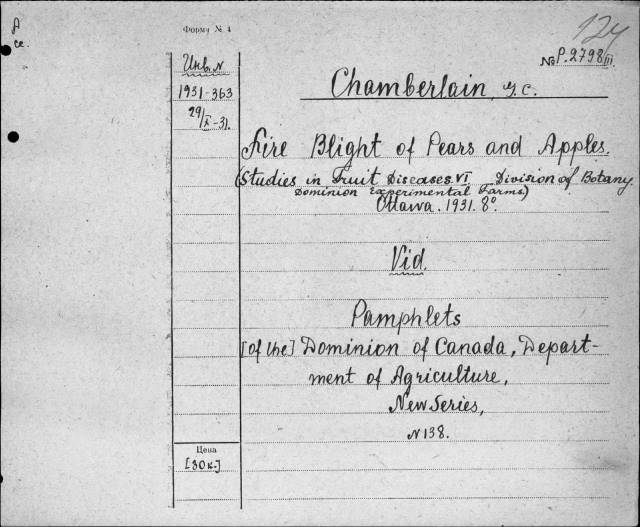 A
ce.
Форму № 4
124
Инв. N
№ P.2798/III.
1931-363
Chamberlain, G.C.
29/X-31.
Fire Blight of Pears and Apples.
(Studies in Fruit Diseases.VI Division of Botany.
Dominion Experimental Farms)
Ottawa. 1931. 8º.
Vid.
Pamphlets
[of the] Dominion of Canada, Depart-
ment of Agriculture,
New Series,
N 138.
Цена
[30к.]